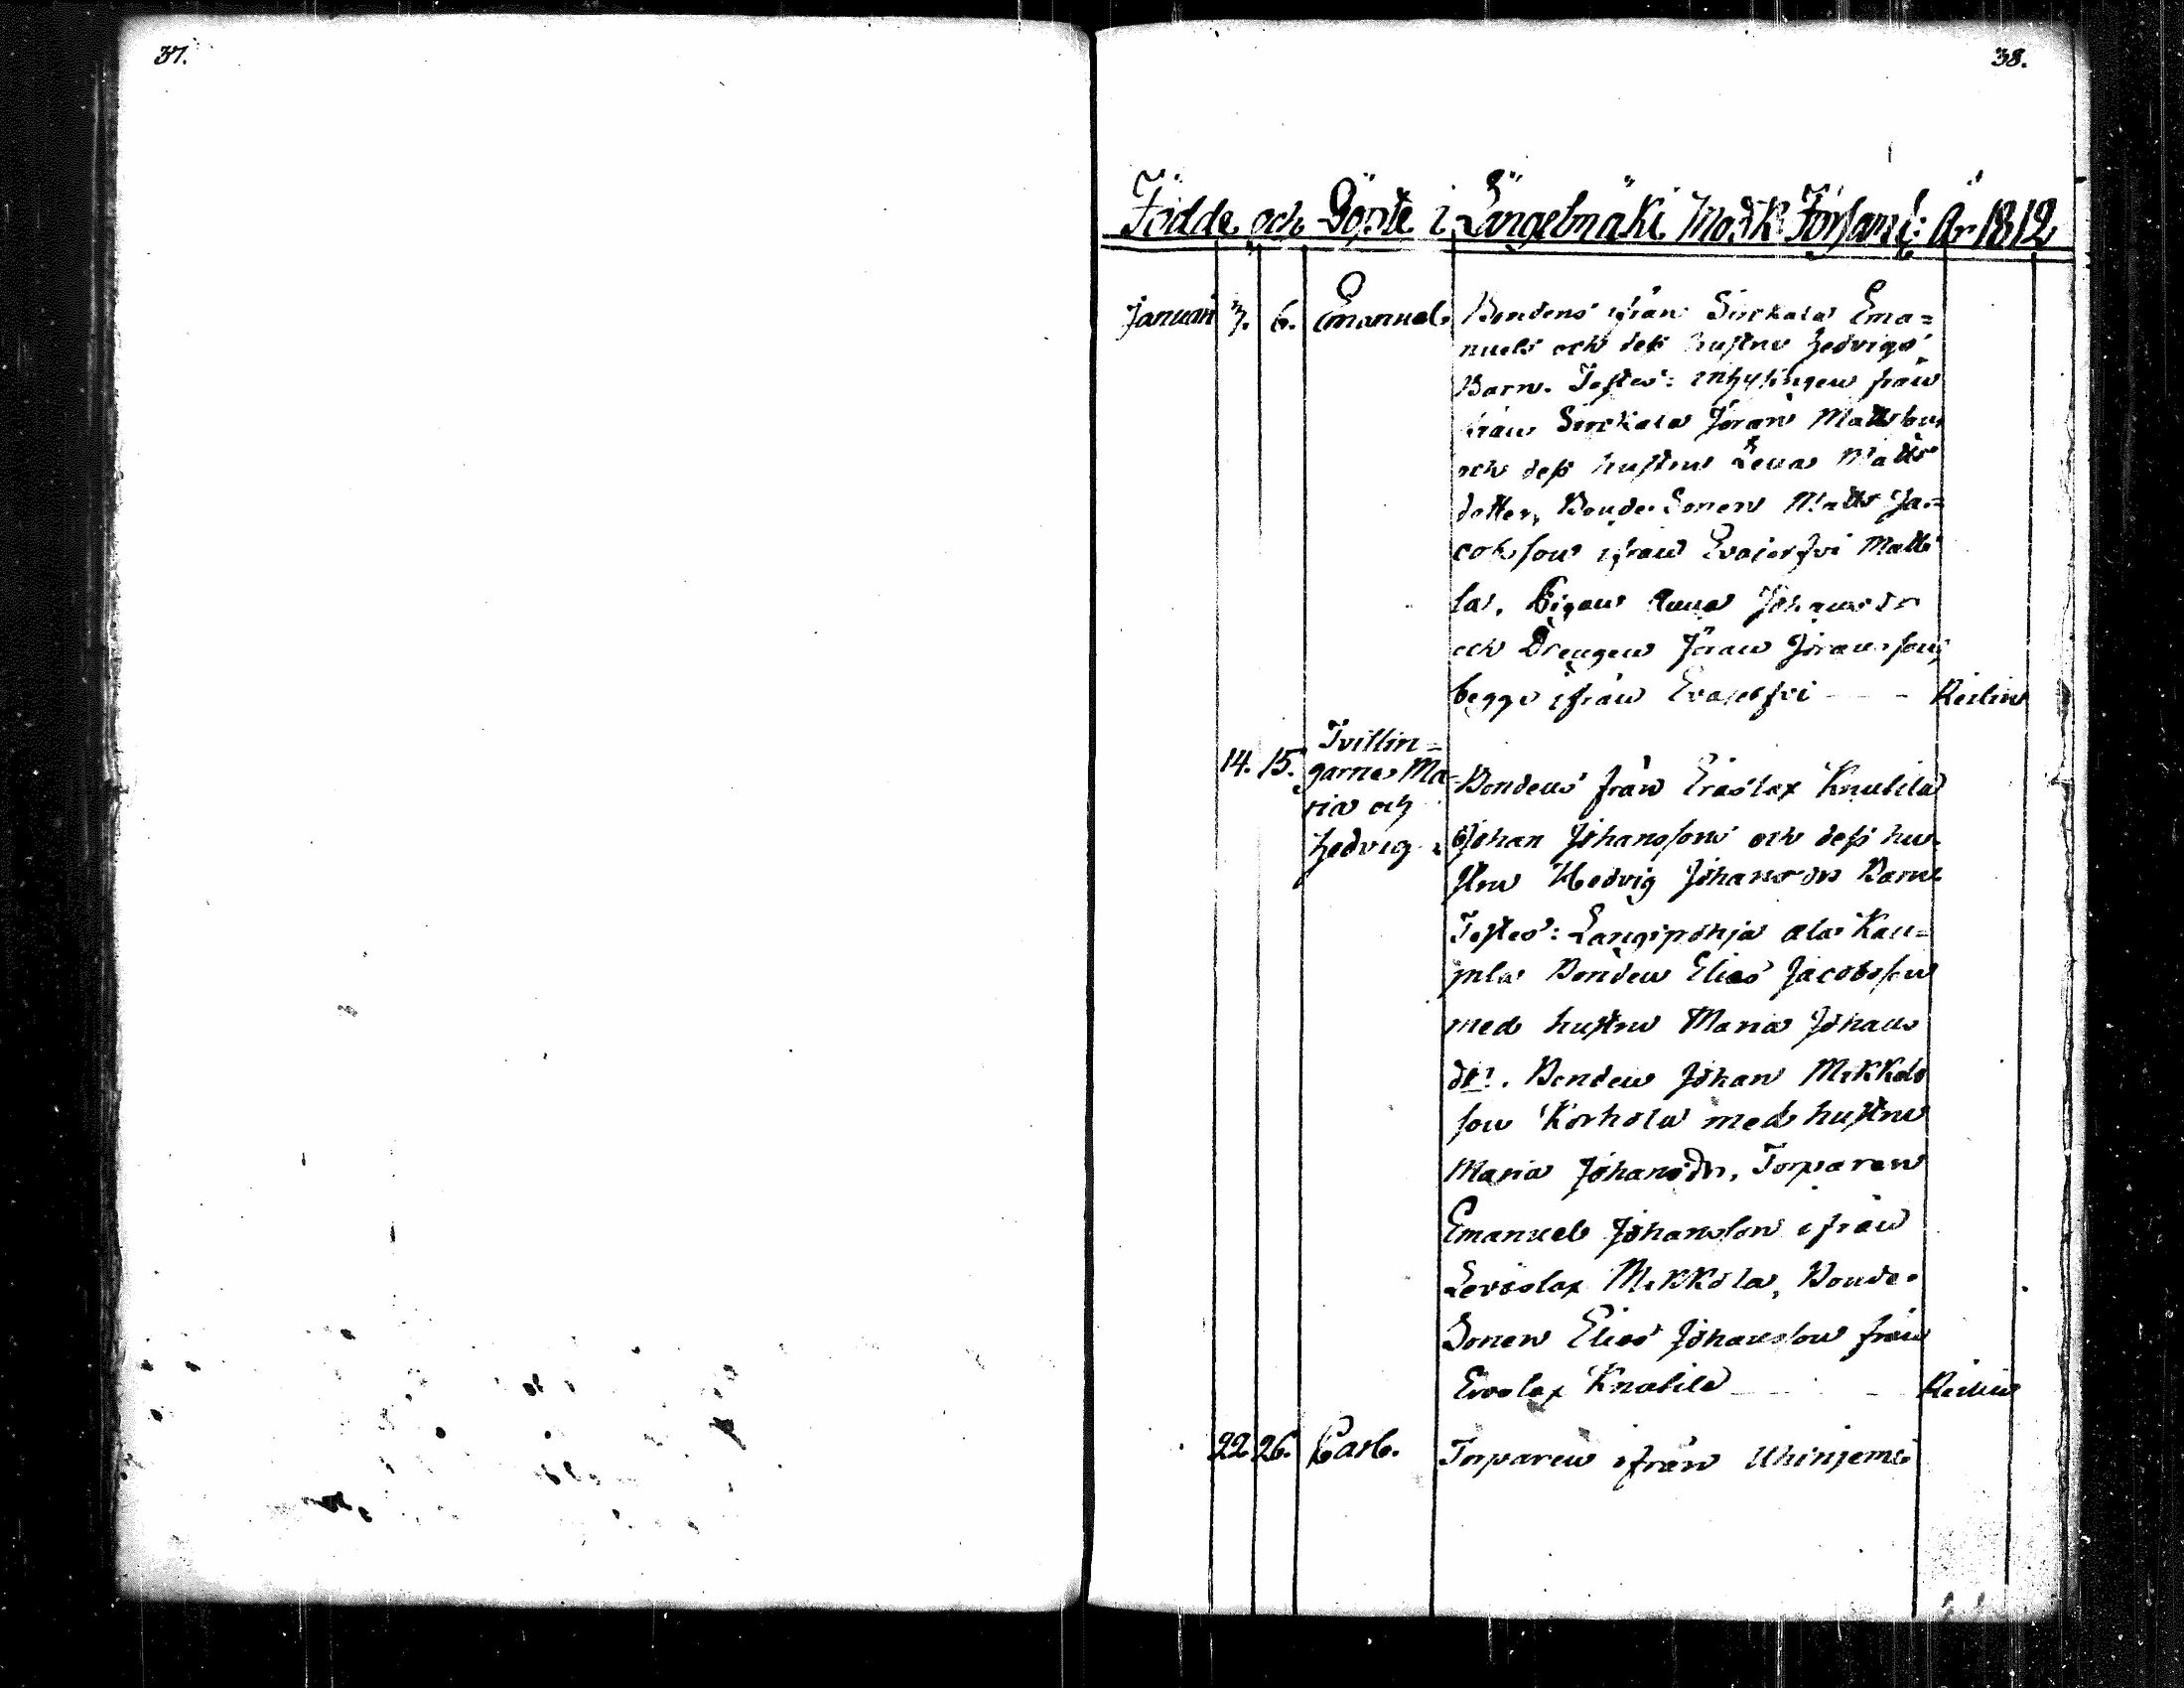 37.
38.
Födde och Döpte i Längelmäki Mod:K: Församl: År 1812
Januari 3. 6. Emanuel. Bondens ifrån Sirkala Ema=
nuels och dess hustru Hedvigs
Barn. Testes: Inhysingen från
från Sirkala Jöran Mattsson
och dess hustru Lena Matts
dotter, Bonde Sonen Matts Ja=
cobsson ifrån Evajerfvi Matti
la, Pigan Anna Johansdr
och Drengen Jöran Göransson,
begge ifrån Evajerfvi - - - Reilin
14. 15. Tvillin=
garne Ma=
ria och
Hedvig.
Bondens från Eräslax Knutila
Johan Johanssons och dess hu-
stru Hedvig Johansdrs Barn
Testes: Längipohja ala Kau=
pila Bonden Elias Jacobsson
med hustru Maria Johans
dr. Bonden Johan Mikkels
son Korhola med hustru
Maria Johansdr, Torparen
Emanuel Johansson ifrån
Leväslax Mikkola, Bonde-
Sonen Elias Johansson från
Eräslax Knutila - - - Reilin
22. 26. Carl. Torparen ifrån Uhinjemi